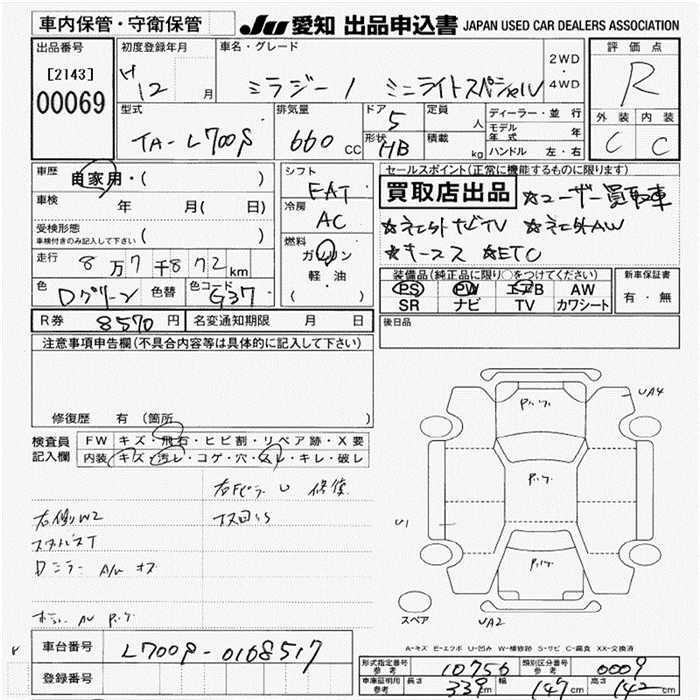 車内保管・守衛保管
JU 愛知 出品申込書 JAPAN USED CAR DEALERS ASSOCIATION
出品番号
[2143]
00069
初度登録年月
H12 月
車名・グレード
ミラジーノ ミニライトスペシャル
2WD
・
4WD
評価点
R
外装 内装
C C
型式
TA-L700S
排気量
660 CC
ドア
5
形状
HB
定員
人
積載
kg
ディーラー・並行
モデル年式 年
ハンドル 左・右
車歴
自家用・( )
車検 年 月( 日)
受検形態
車検付きのみ記入して下さい ( )
走行 8万7千872km
色 Dグリーン 色替 色コード G37
シフト
FAT
冷房
AC
燃料
ガソリン
軽・油
( )
セールスポイント(正常に機能するものに限ります)
買取店出品 ☆ユーザー買取車
☆社外ナビTV ☆社外AW
☆キーレス ☆ETC
装備品(純正品に限り○をつけてください)
PS PW エアB AW
SR ナビ TV カワシート
新車保証書
有・無
R券 8570円 名変通知期限 月 日
後日品
注意事項申告欄(不具合内容等は具体的に記入して下さい)
修復歴 有(箇所 )
検査員
記入欄
FW キズ・飛石・ヒビ割・リペア跡・X要
内装 キズ・汚レ・コゲ・穴・スレ・キレ・破レ
右Fピラー U 修復
右側W2
Dミラー A/U
P.ック
UA4
P.ック
U1
P.ック
スペア
UA2
A-キズ E-エクボ U-凹み W-補修跡 S-サビ C-腐食 XX-交換済
車台番号 L700S-0168517
登録番号
形式指定番号
参考
10756
類別区分番号
参考
0009
車庫証明用
参考
長さ 339cm 幅 147cm 高さ 142cm